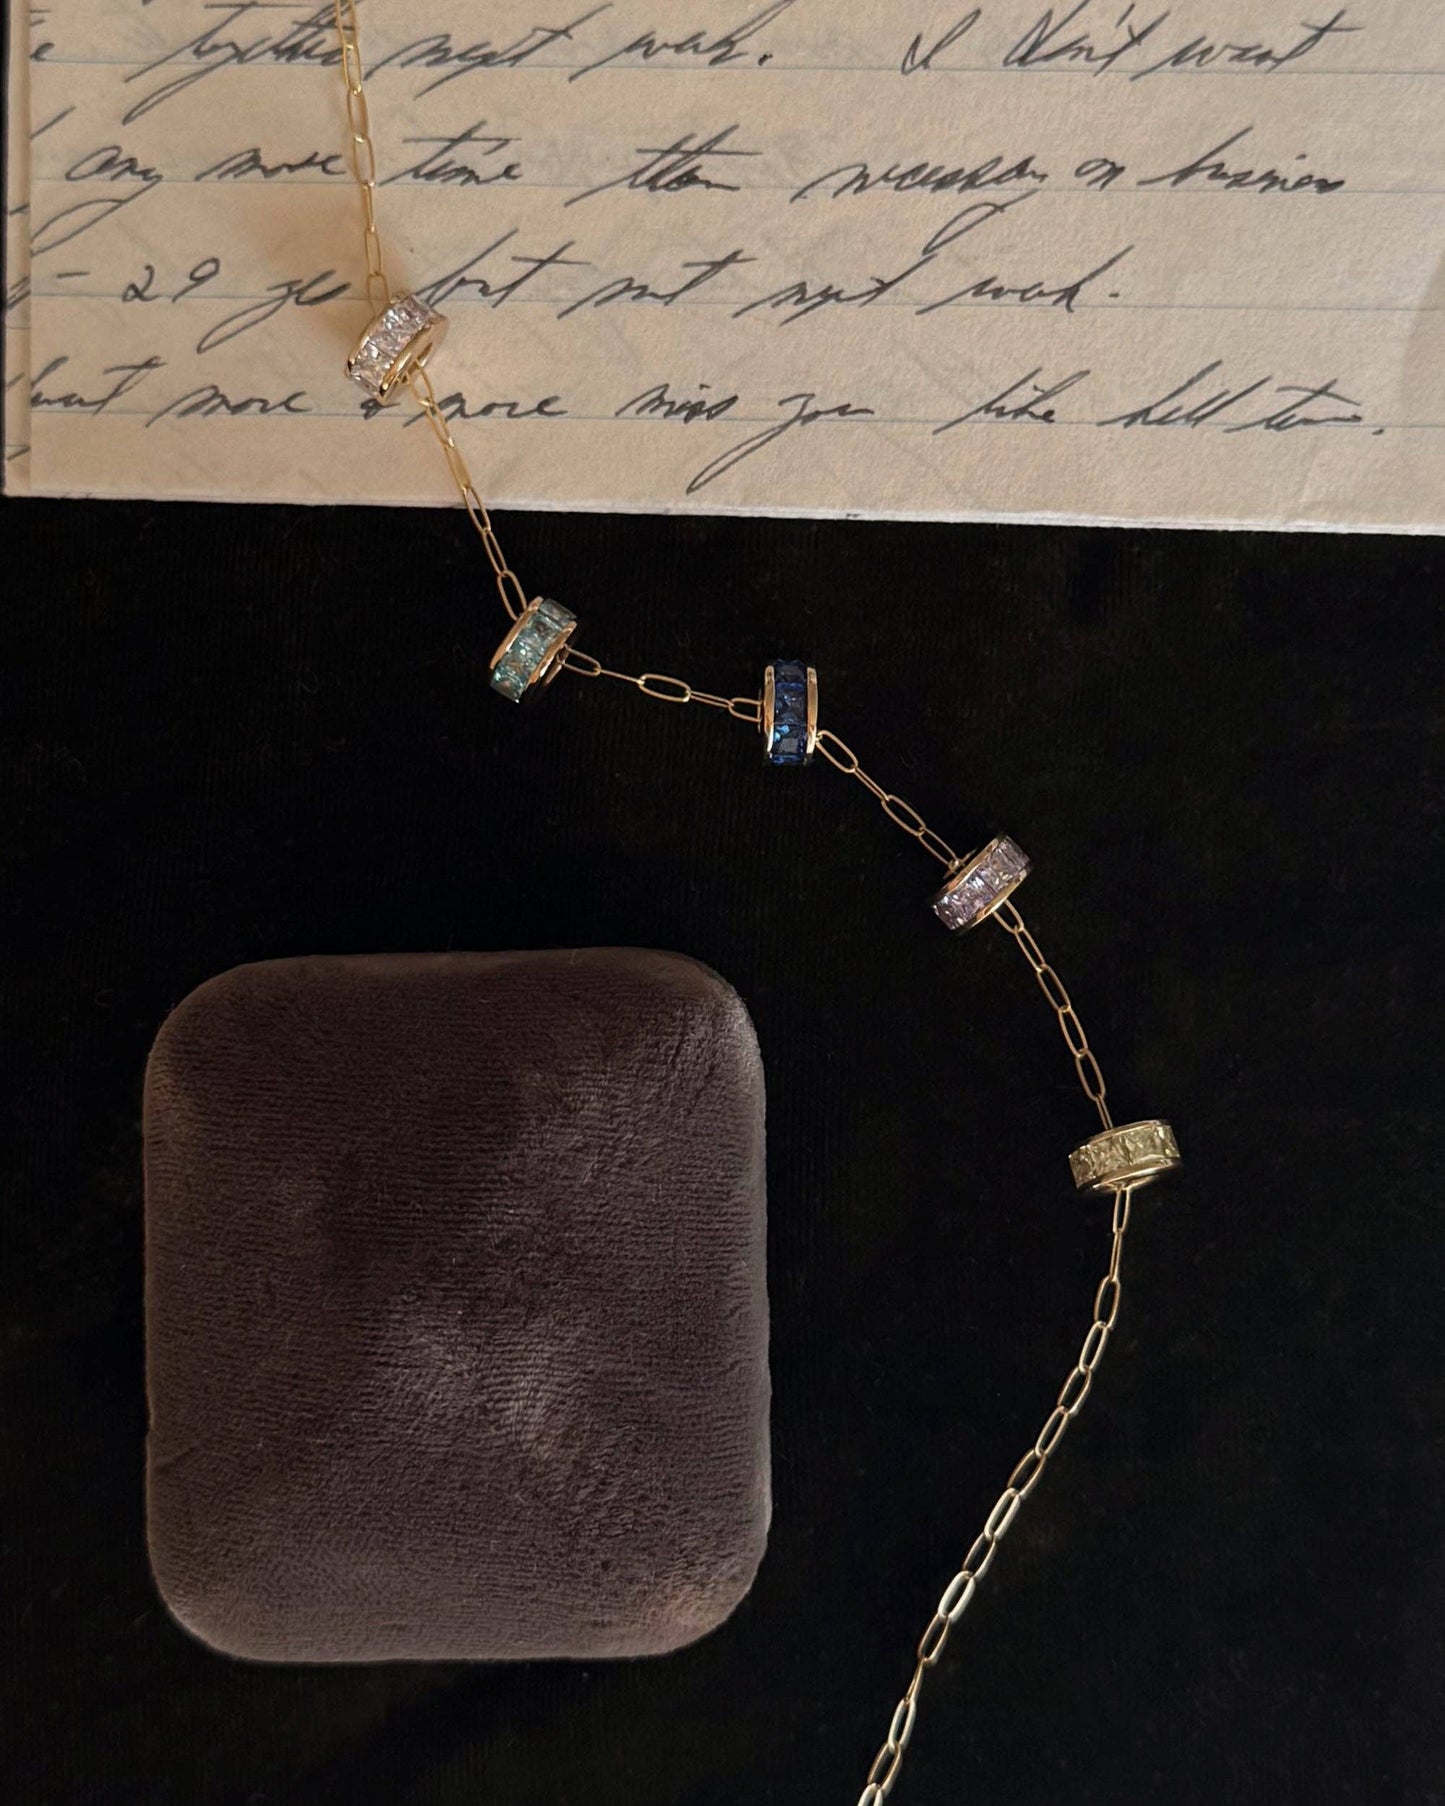 together next week. I don't want
any more time than necessary on business
- 29 yes but not next week.
want more & more miss you like hell too.